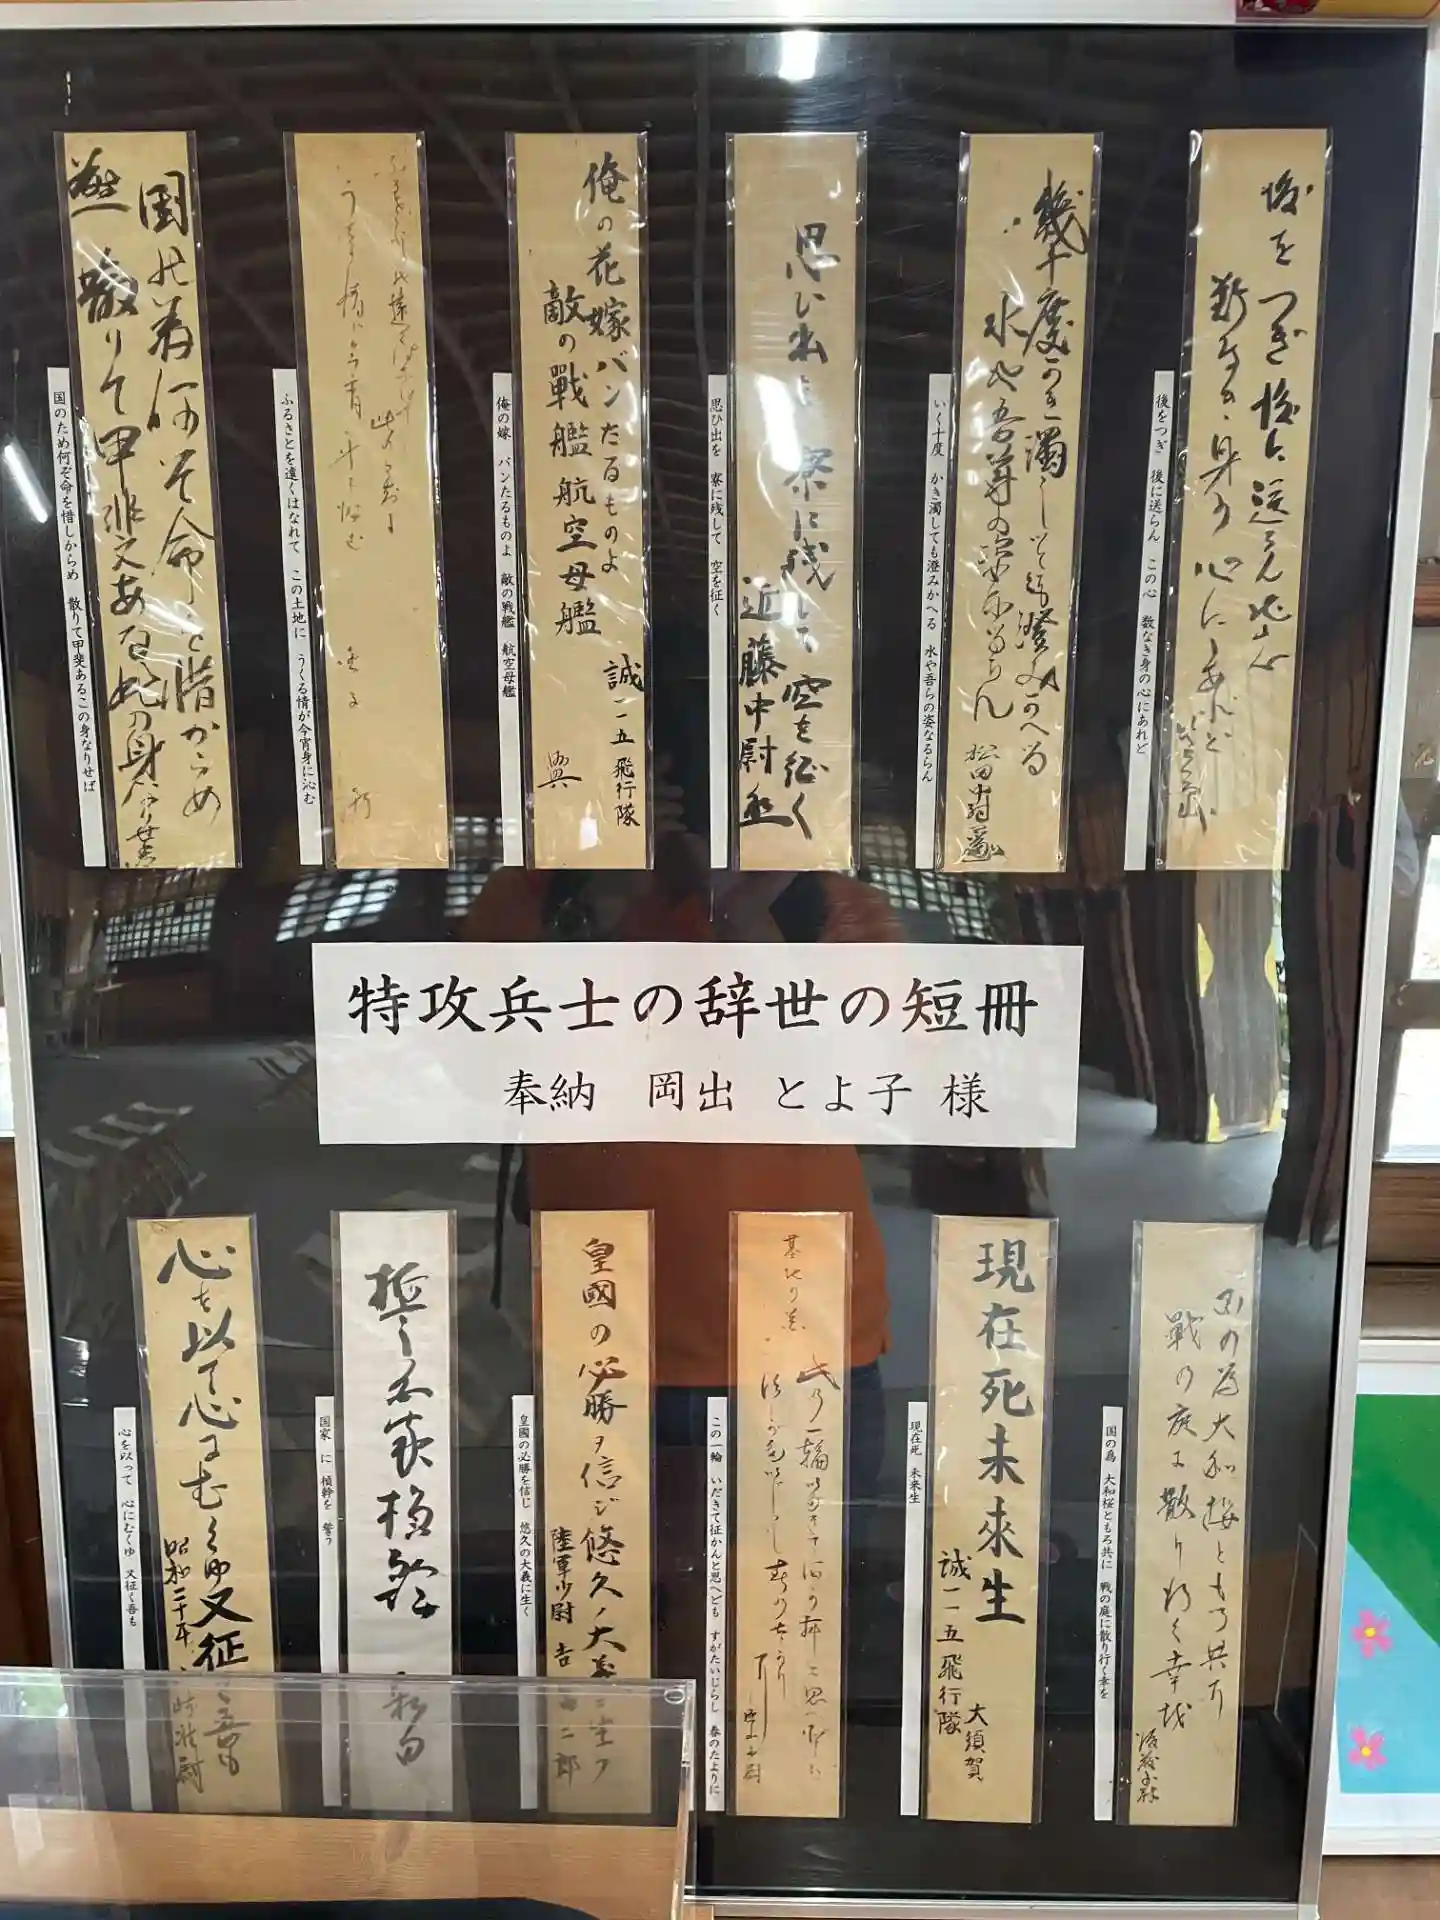 後をつぎ後に送らん此心
数なき身の心にあれど
後をつぎ 後に送らん この心 数なき身の心にあれど
幾十度かき濁しても澄みかへる
水や吾等の姿なるらん
松田中尉
いく十度 かき濁しても澄みかへる 水や吾らの姿なるらん
思ひ出を寮に残して空を征く
近藤中尉
思ひ出を 寮に残して 空を征く
俺の花嫁バンたるものよ
敵の戰艦航空母艦
誠一一五飛行隊
興
俺の嫁 バンたるものよ 敵の戦艦 航空母艦
ふるさとを遠くはなれて この土地に うくる情が今宵身に沁む
国の為何ぞ命を惜からめ
散りて甲非文ある此の身なりせば
国のため何ぞ命を惜しからめ 散りて甲斐あるこの身なりせば
特攻兵士の辞世の短冊
奉納 岡出 とよ子 様
国の為大和桜ともろ共に
戰の庭に散り行く幸を
国の爲 大和桜ともろ共に 戦の庭に散り行く幸を
現在死未來生
誠一一五飛行隊
大須賀
現在死 未来生
基地の
此の一輪
この一輪 いだきて征かんと思へども すがたいじらし 春のたよりに
皇國の必勝ヲ信ジ悠久ノ大義ニ生ク
陸軍少尉 吉
二郎
皇國の必勝を信じ 悠久の大義に生く
誓国家楨幹
国家 に 楨幹を 誓う
心を以て心にむくゆ又征く吾も
昭和二十年
心を以って 心にむくゆ 又征く吾も